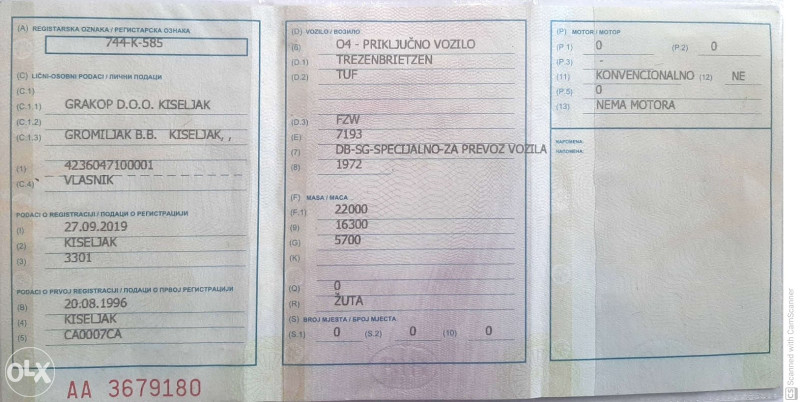 (A) REGISTARSKA OZNAKA / РЕГИСТАРСКА ОЗНАКА
744-K-585
(C) LIČNI-OSOBNI PODACI / ЛИЧНИ ПОДАЦИ
(C.1)
(C.1.1) GRAKOP D.O.O. KISELJAK
(C.1.2)
(C.1.3) GROMILJAK B.B. KISELJAK, ,
(1) 4236047100001
(C.4) VLASNIK
PODACI O REGISTRACIJI / ПОДАЦИ О РЕГИСТРАЦИЈИ
(I) 27.09.2019
(2) KISELJAK
(3) 3301
PODACI O PRVOJ REGISTRACIJI / ПОДАЦИ О ПРВОЈ РЕГИСТРАЦИЈИ
(B) 20.08.1996
(4) KISELJAK
(5) CA0007CA
AA 3679180
(D) VOZILO / ВОЗИЛО
(6) O4 - PRIKLJUČNO VOZILO
(D.1) TREZENBRIETZEN
(D.2) TUF
(D.3) FZW
(E) 7193
(7) DB-SG-SPECIJALNO-ZA PREVOZ VOZILA
(8) 1972
(F) MASA / МАСА
(F.1) 22000
(9) 16300
(G) 5700
(K)
(Q) 0
(R) ŽUTA
(S) BROJ MJESTA / БРОЈ МЈЕСТА
(S.1) 0 (S.2) 0 (10) 0
(P) MOTOR / МОТОР
(P.1) 0 (P.2) 0
(P.3) -
(11) KONVENCIONALNO (12) NE
(P.5) 0
(13) NEMA MOTORA
NAPOMENA:
НАПОМЕНА:
OLX
BIH
CS Scanned with CamScanner